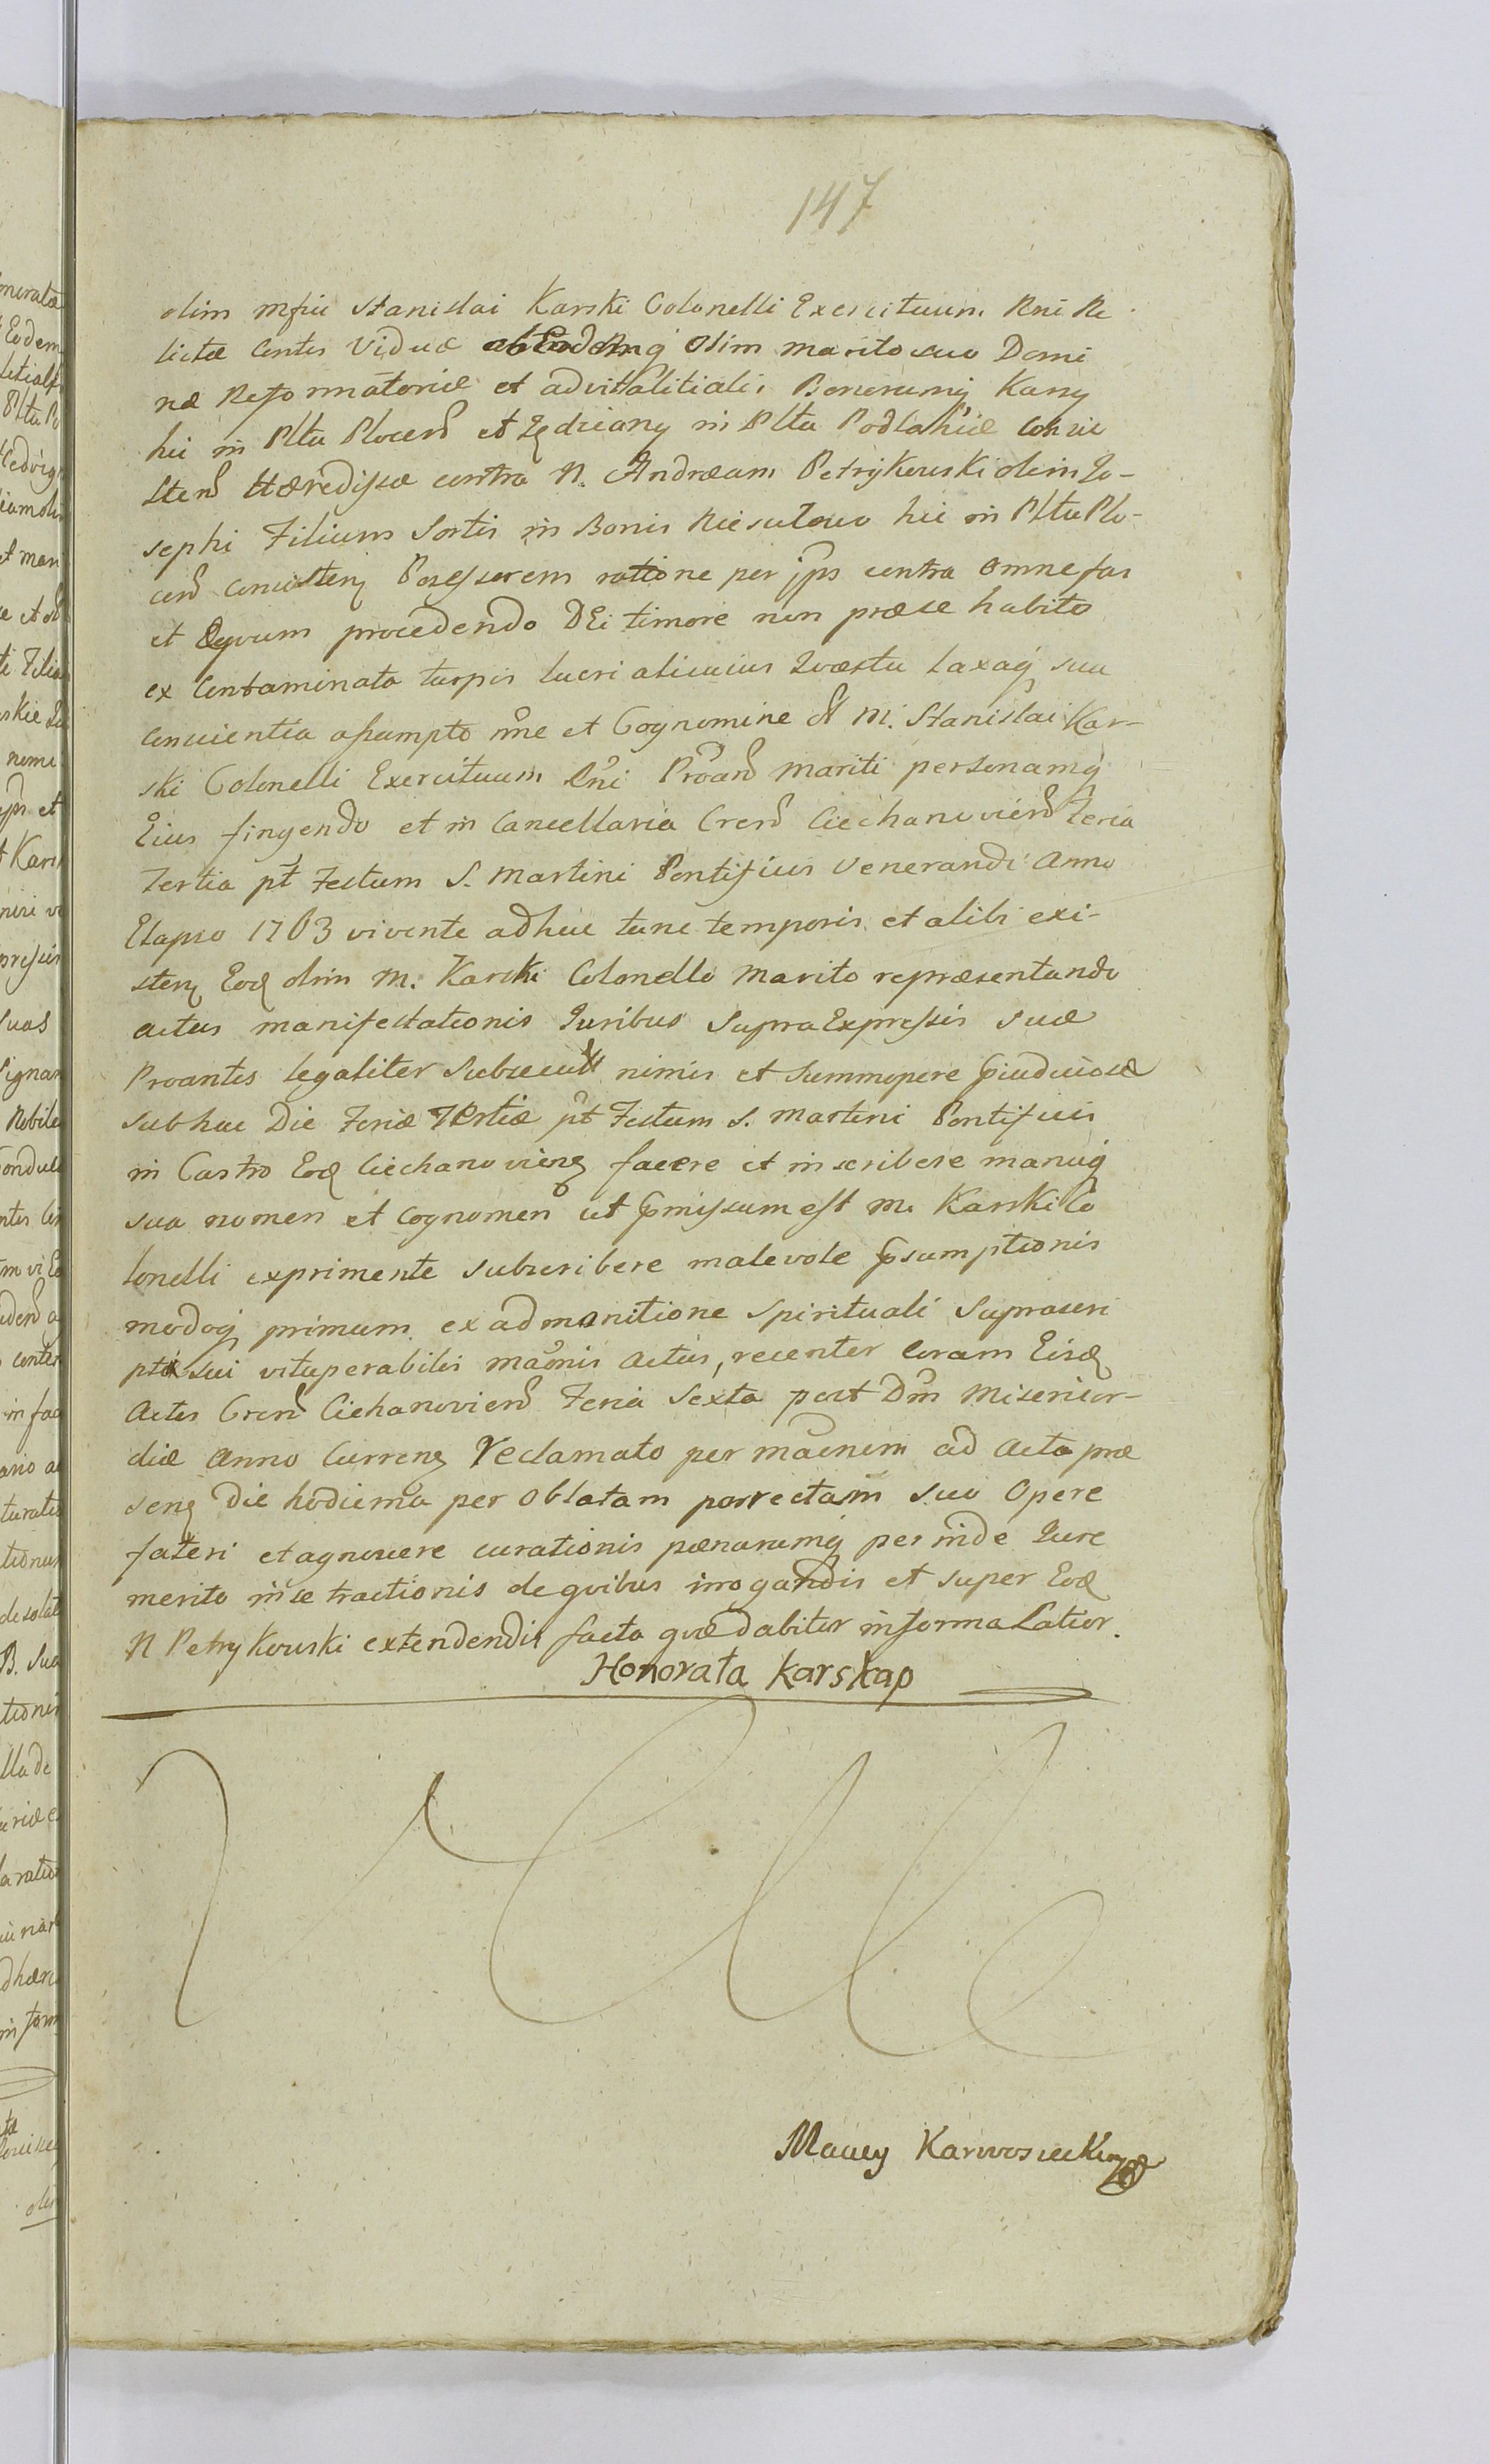 147
olim Mfici Stanislai Karski Colonelli Exercituum Rni Re
lictæ Contis Viduæ ab Eodemq olim marito suo Domi
næ Reformatoriæ et advitalitialis Bonorumq Karsy
hic in Pltu Plocen et Zędziany in Pltu Podlahiæ consis
sten Hæredissæ contra N. Andræam Petrykowski olim Jo-
sephi Filium Sortis in Bonis Niesulowo hic in Pltu Plo-
cen consisten Possessorem ratione per jps contra omne fas
et Æquum procedendo DEi timore non præ se habito
ex Contaminata turpis lucri alicuius Qvæstu laxaq sua
Conscientia assumpto nne et Cognomine olim M. Stanislai Kar-
ski Colonelli Exercituum Rni Proan mariti personamq
Eius fingendo et in Cancellaria Cren Ciechanovien Feria
Tertia pt Festum S. Martini Pontificis Venerandi Anno
Elapso 1763 vivente adhuc tunc temporis et alibi exi-
sten Eod olim M. Karski Colonello Marito repræsentando
actus manifestationis Juribus SupraExpressis suæ
Proantis legaliter Subsecut nimis et Summopere pjudiciosæ
sub hac Die Feriæ Tertiæ pt Festum S. Martini Pontificis
in Castro Eod Ciechanovien facere et inscribere manuq
sua nomen et Cognomen ut pmissum est M. Karski Co
lonelli exprimente subscribere malevole psumptionis
modoq primum ex admonitione Spirituali Suprascri
pti sui vituperabilis maonis actus, recenter coram Eisd
Actis Cren Ciehanovien Feria Sexta post Dm Misericor-
diæ Anno Curren reclamato per maonem ad Acta præ
sen Die hodierna per Oblatam porrectam suo Opere
fateri et agnoscere curationis pænarumq per inde Jure
merito in se tractionis de qvibus irrogandis et super Eod
N Petrykowski extendendis facta qvæ dabitur in forma Latior.
Honorata Karska p
Maciey Karwosiecki